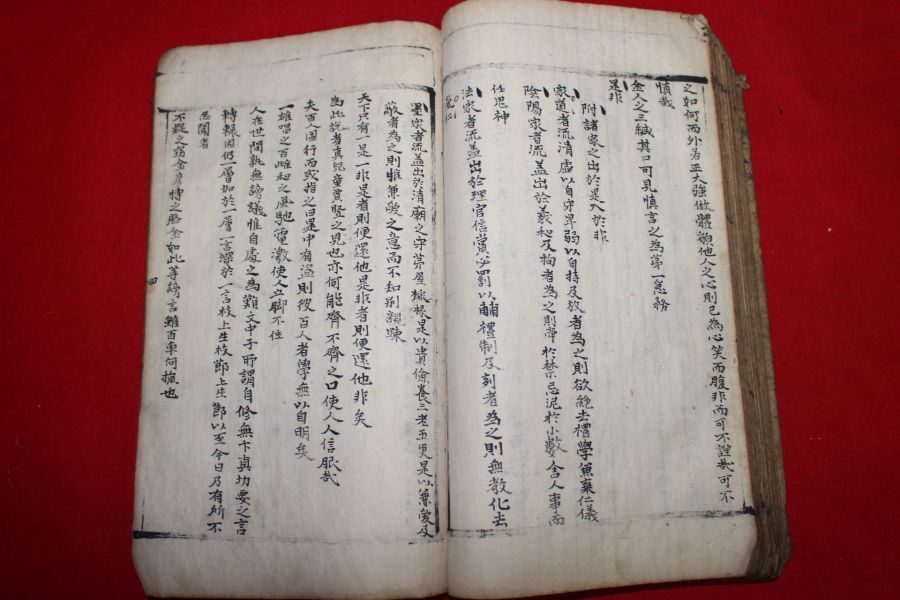 之如何而外若正大強做體貌他人之心則已為心笑而腹非而可不謹哉可不
慎哉
金人之三緘其口可見慎言之為第一急務
是非
附諸家之出於是入於非
家道者流清虛以自守卑弱以自持及放者為之則欲絶去禮學兼棄仁儀
陰陽家者流盖出於羲和及拘者為之則牽於禁忌泥於小數舍人事而
任思神
法家者流盖出於理官信賞必罰以輔禮制及刻者為之則無教化去
墨家者流盖出於清廟之守茅屋採椽是以貴儉養三老五更是以兼愛及
蔽者為之則推兼愛之意而不知別親踈
天下只有一是一非是者則便還他是非者則便還他非矣
為此說者真兒童賈竪之見也亦何能齊不齊之口使人人信服哉
夫百人同行而或指之曰是中有盜則彼百人者擧無以自明矣
一雄唱之百雌和之風馳電激使人立脚不住
人在世間孰無謗議惟自處之為難文中子所謂自修無卞真切要之言
轉輾因仍一層加於一層一言深於一言枝上生枝節上生節以至今日乃有所不
忍聞者
不疑之竊金
如此等謗言雖百車何傷也
四